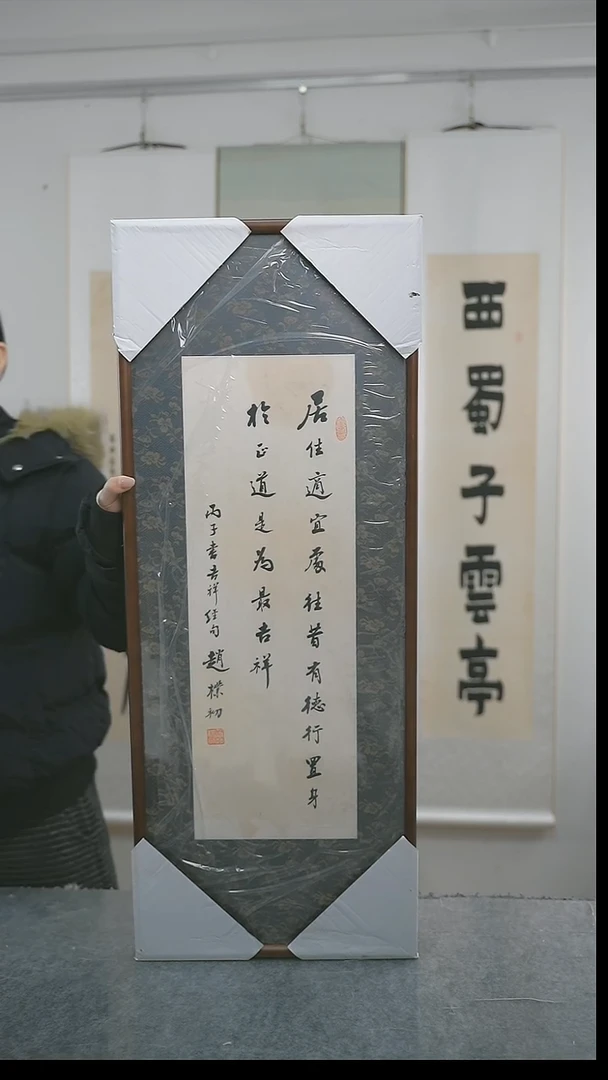 居住適宜處往昔有德行置身
於正道是為最吉祥
丙子書吉祥經句趙樸初
西蜀子雲亭